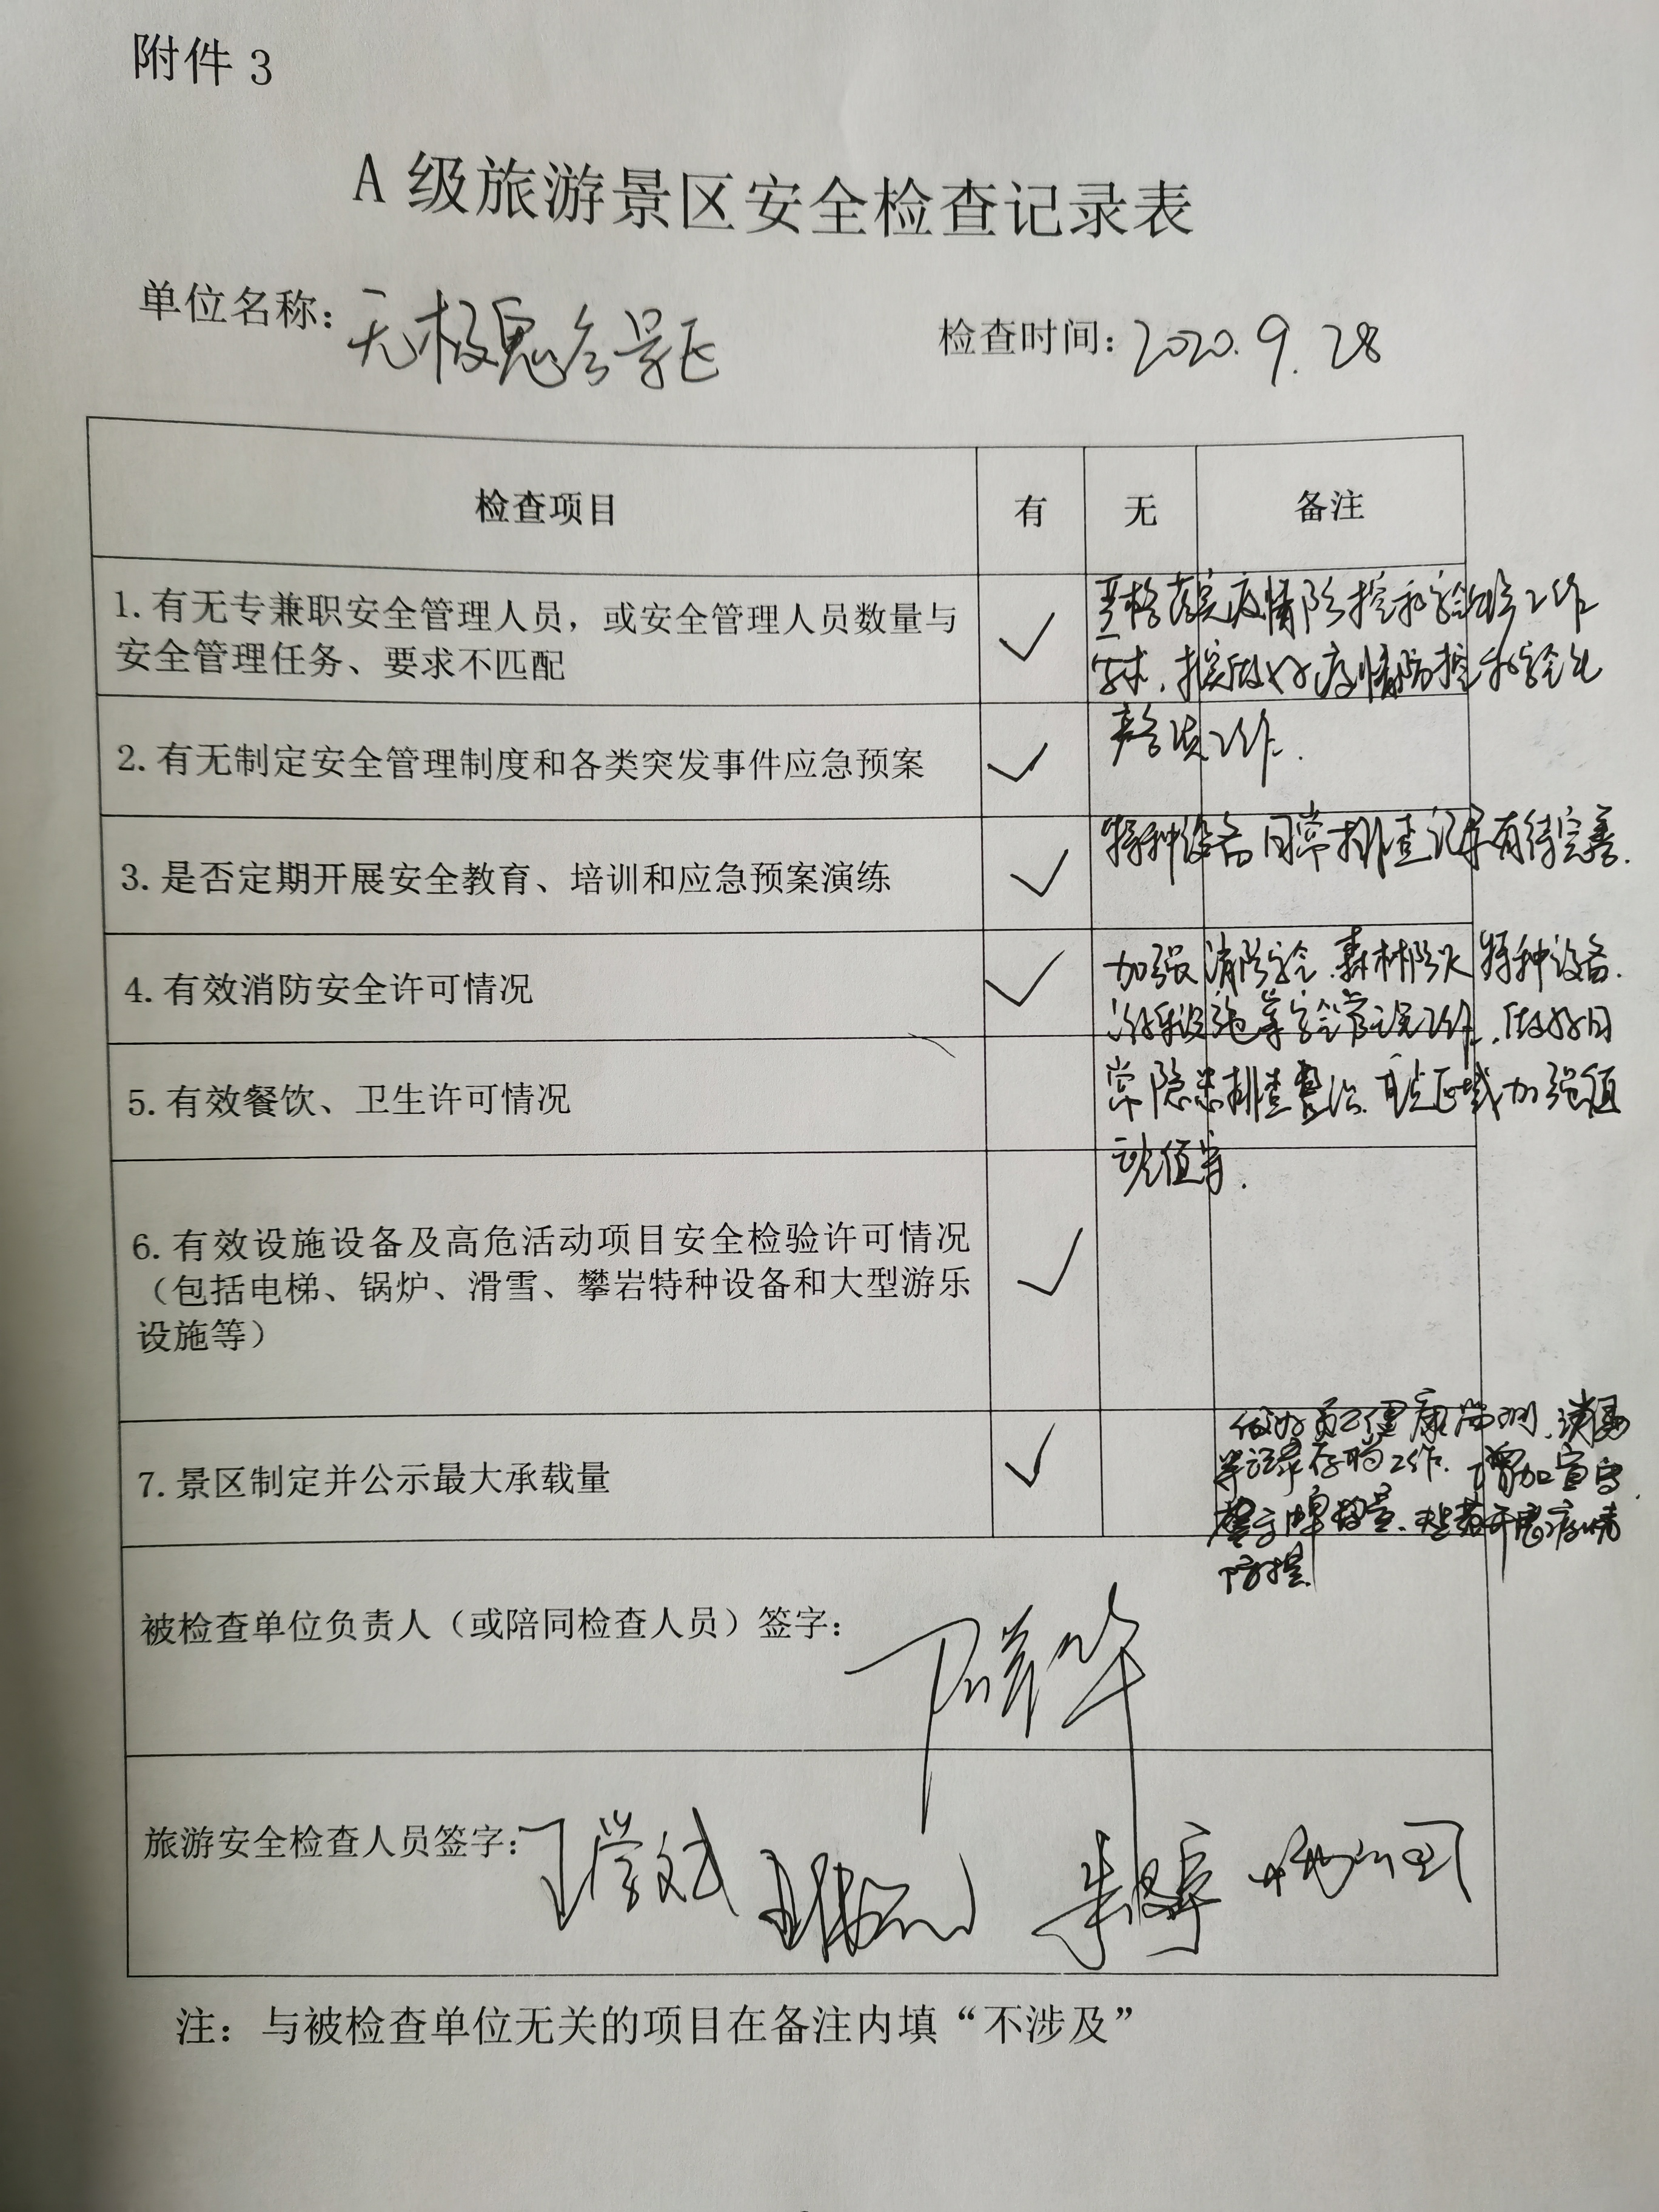 附件3
A级旅游景区安全检查记录表
单位名称：无极鬼谷景区 检查时间：2020.9.28
检查项目 有 无 备注
1.有无专兼职安全管理人员，或安全管理人员数量与
安全管理任务、要求不匹配 ✓
严格落实疫情防控和安全生产工作
要求，抓实做好疫情防控和安全生
产各项工作.
2.有无制定安全管理制度和各类突发事件应急预案 ✓
3.是否定期开展安全教育、培训和应急预案演练 ✓
特种设备日常排查记录有待完善.
4.有效消防安全许可情况 ✓
加强消防安全.森林防火 特种设备.
游乐设施等安全管理工作.做好日
常隐患排查整治.重点区域加强值
班值守.
5.有效餐饮、卫生许可情况
6.有效设施设备及高危活动项目安全检验许可情况
（包括电梯、锅炉、滑雪、攀岩特种设备和大型游乐
设施等） ✓
7.景区制定并公示最大承载量 ✓
做好员工健康监测.消毒
等记录存档工作.增加宣传
警示牌数量.开展疫情
防控
被检查单位负责人（或陪同检查人员）签字：
旅游安全检查人员签字：
注：与被检查单位无关的项目在备注内填“不涉及”